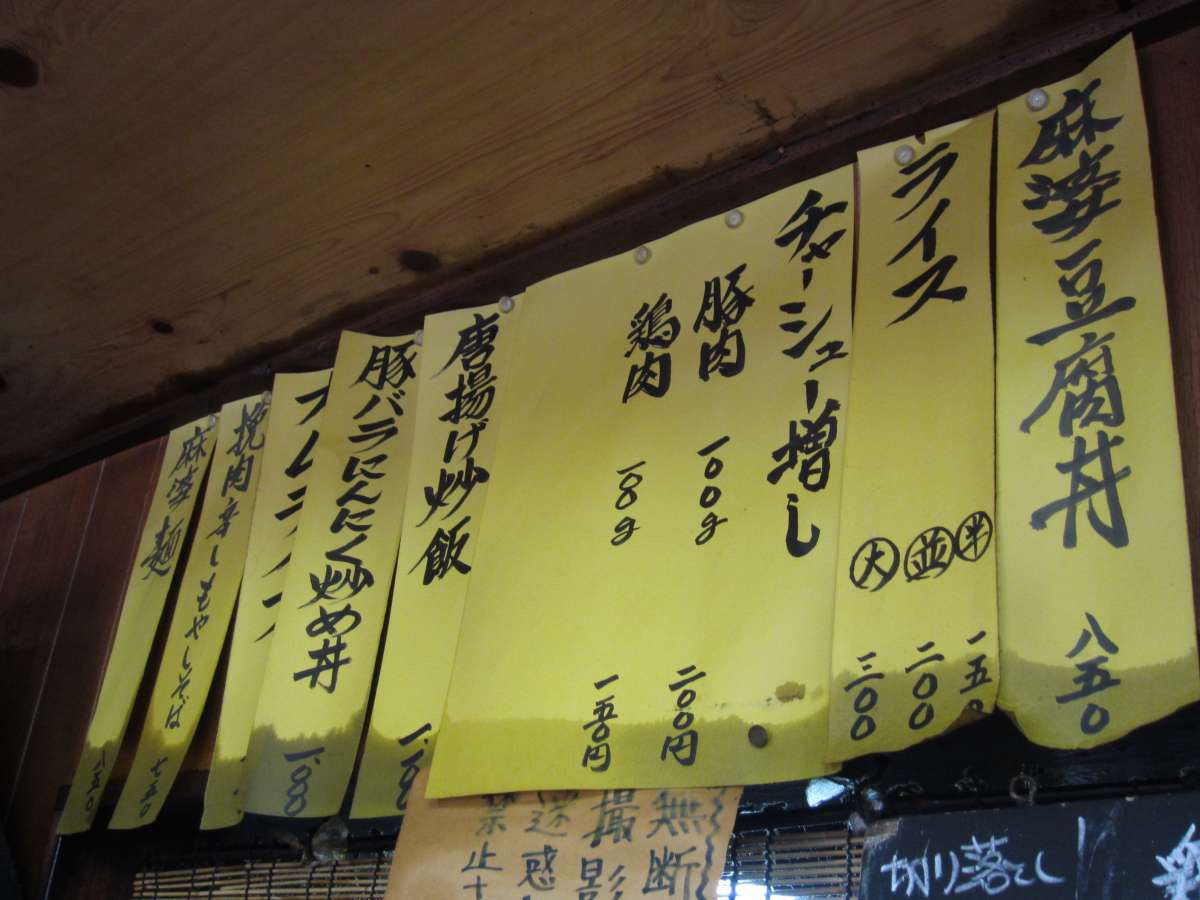 麻婆豆腐丼 八五〇
ライス
半 一五〇
並 二〇〇
大 三〇〇
チャーシュー増し
豚肉 一〇〇g 二〇〇円
鶏肉 一〇〇g 一五〇円
唐揚げ炒飯
豚バラにんにく炒め丼
挽肉辛しもやしそば 七五〇
麻婆麺 八五〇
無断
撮影
迷惑
禁止
切り落とし